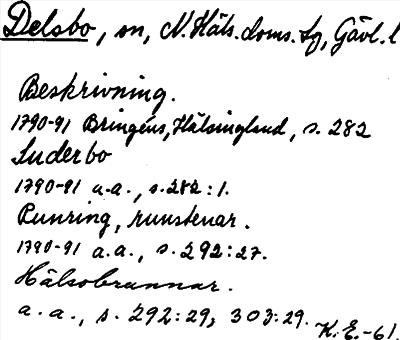 Delsbo, sn, N. Häls. doms. tg, Gävl. l
Beskrivning.
1790-91 Bringéus, Hälsingland, s. 282
Suderbo
1790-91 a.a., s. 282:1.
Runring, runstenar.
1790-91 a.a., s. 292:27.
Hälsobrunnar.
a.a., s. 292:29, 303:29.
K.E.-61.